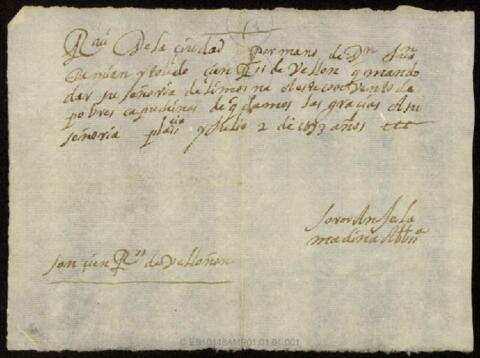 Rvi De la ciudad por mano de Dn Jun
Damian y toledo çien Rs de Vellon q mando
dar su señoria de limosna a este conVento de
pobres capuchinas de q damos las graçias A su
señoria y Julio 2 de años
soror AnJela
madina Abba
son çien Rs de Vellon
© ES10148AMP01.01.01.001